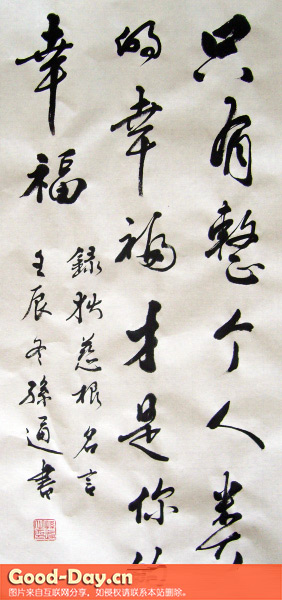 只有整个人类
的幸福才是你的
幸福
録狄慈根名言
壬辰冬孫通書
Good-Day.cn
图片来自互联网分享，如侵权请联系本站删除。